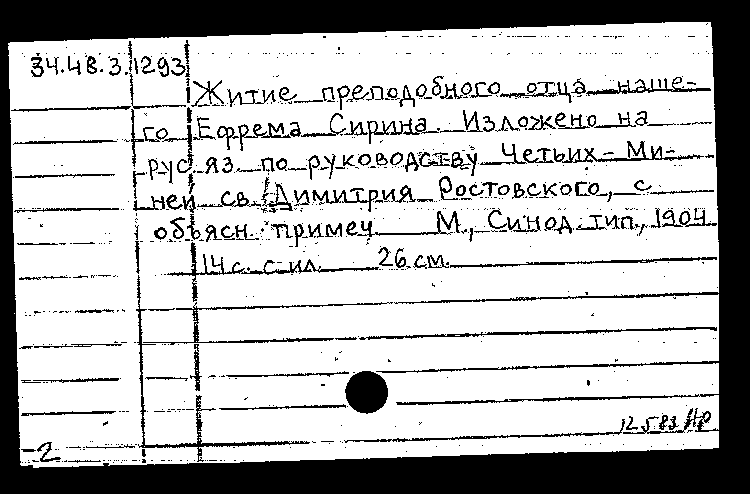 34.48.3.1293
Житие преподобного отца наше-
го Ефрема Сирина. Изложено на
рус яз. по руководству Четьих-Ми-
ней св. Димитрия Ростовского, с
объясн. примеч М., Синод. тип., 1904
14 с. с ил. 26 см.
12583 Нр
2